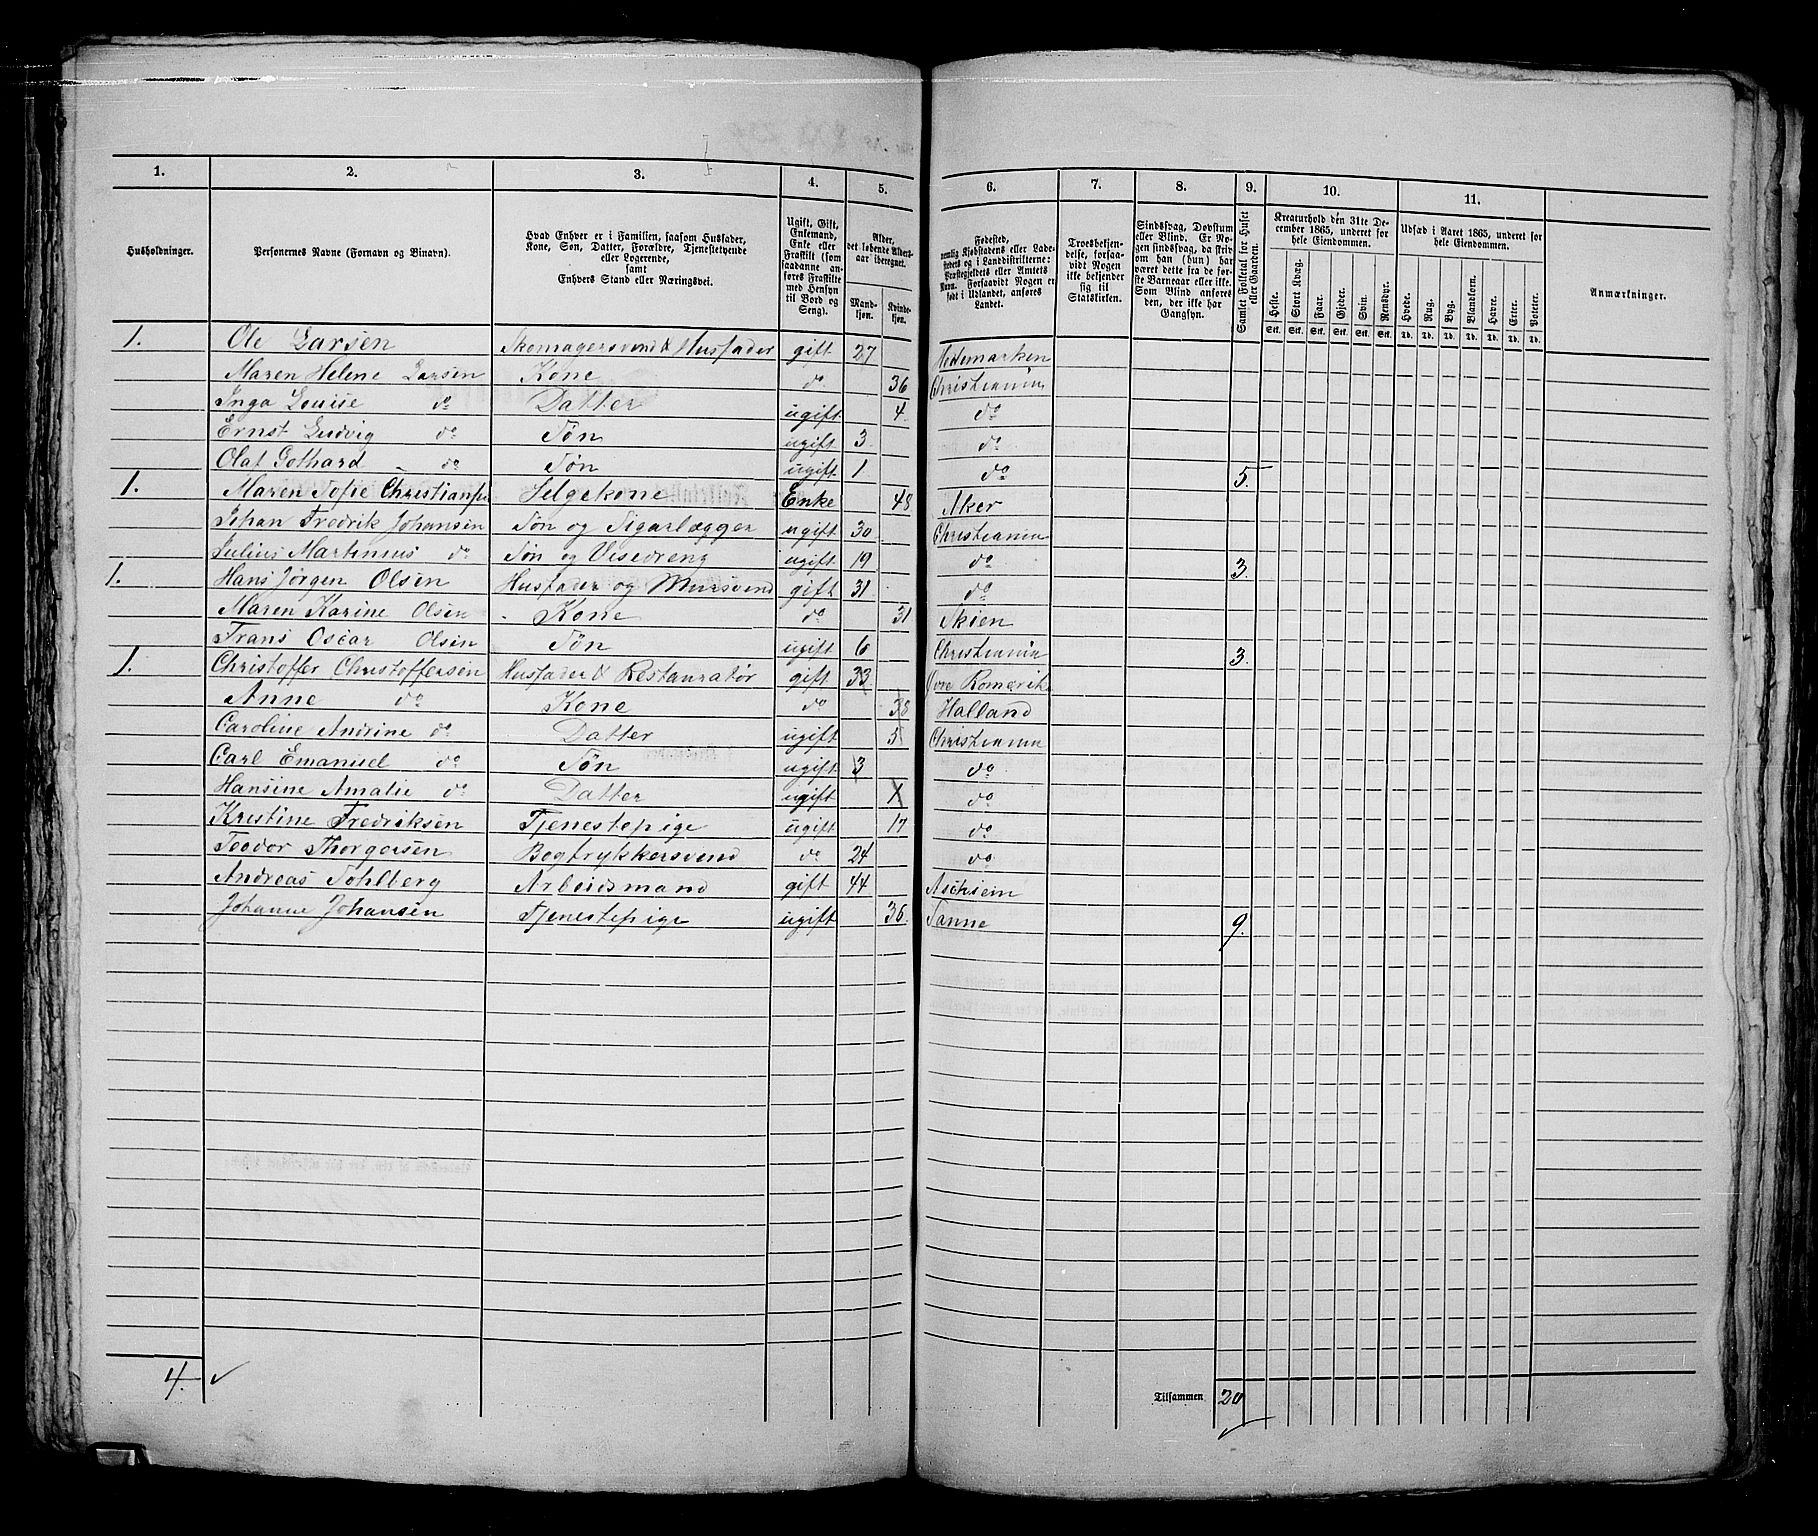 1. 2. 3. 4. 5. 6. 7. 8. 9. 10. 11.
Husholdninger.
Personernes Navne (Fornavn og Binavn).
Hvad Enhver er i Familien, saasom Husfader, Kone, Søn, Datter, Forældre, Tjenestetyende eller Logerende, samt Enhvers Stand eller Næringsvei.
Ugift, Gift, Enkemand, Enke eller Fraskilt (som saadanne anføres Fraskilte med Hensyn til Bord og Seng).
Alder, det løbende Aldersaar iberegnet.
Mandkjøn. Kvindekjøn.
Fødested, nemlig Kjøbstadens eller Ladestedets og i Landdistrikterne: Præstegjeldets eller Amtets Navn. Forsaavidt Nogen er født i Udlandet, anføres Landet.
Troesbekjendelse, forsaavidt Nogen ikke bekjender sig til Statskirken.
Sindssvag, Døvstum eller Blind. Er Nogen sindssvag, da skrives om han (hun) har været dette fra de første Barneaar eller ikke. Som Blind anføres den, der ikke har Gangsyn.
Samlet Folketal for Huset eller Gaarden.
Kreaturhold den 31te December 1865, underet for hele Eiendommen.
Heste. Stort Kvæg. Faar. Gjeder. Svin. Rensdyr.
Stk. Stk. Stk. Stk. Stk. Stk.
Udsæd i Aaret 1865, underet for hele Eiendommen.
Hvede. Rug. Byg. Blandkorn. Havre. Erter. Poteter.
Td. Td. Td. Td. Td. Td. Td.
Anmærkninger.
1. Ole Larsen Skomagersvend & Husfader gift 27 Hedemarken
Maren Helene Larsen Kone do 36 Christiania
Inga Louise do Datter ugift 4 do
Ernst Ludvig do Søn ugift 3 do
Olaf Gothard do Søn ugift 1 do 5.
1. Maren Sofie Christians Selgekone Enke 48 Aker
Johan Fredrik Johansen Søn og Sigarlægger ugift 30 Christiania
Julius Martinius do Søn og Visedreng ugift 19 do 3.
1. Hans Jørgen Olsen Husfader og Mursvend gift 31 do
Maren Karine Olsen Kone do 31 Skien
Frans Oscar Olsen Søn ugift 6 Christiania 3.
1. Christoffer Christoffersen Husfader & Restauratør gift 33 Øvre Romerike
Anne do Kone do 38 Halland
Caroline Andrine do Datter ugift 5 Christiania
Carl Emanuel do Søn ugift 3 do
Hansine Amalie do Datter ugift 1 do
Kristine Fredriksen Tjenestepige ugift 17 do
Teodor Thorgersen Bogtrykkersvend do 24 do
Andreas Sohlberg Arbeidsmand gift 44 Aschiem
Johanne Johansen Tjenestepige ugift 36. Sanne 9.
4. ✓
Tilsammen 20 ✓